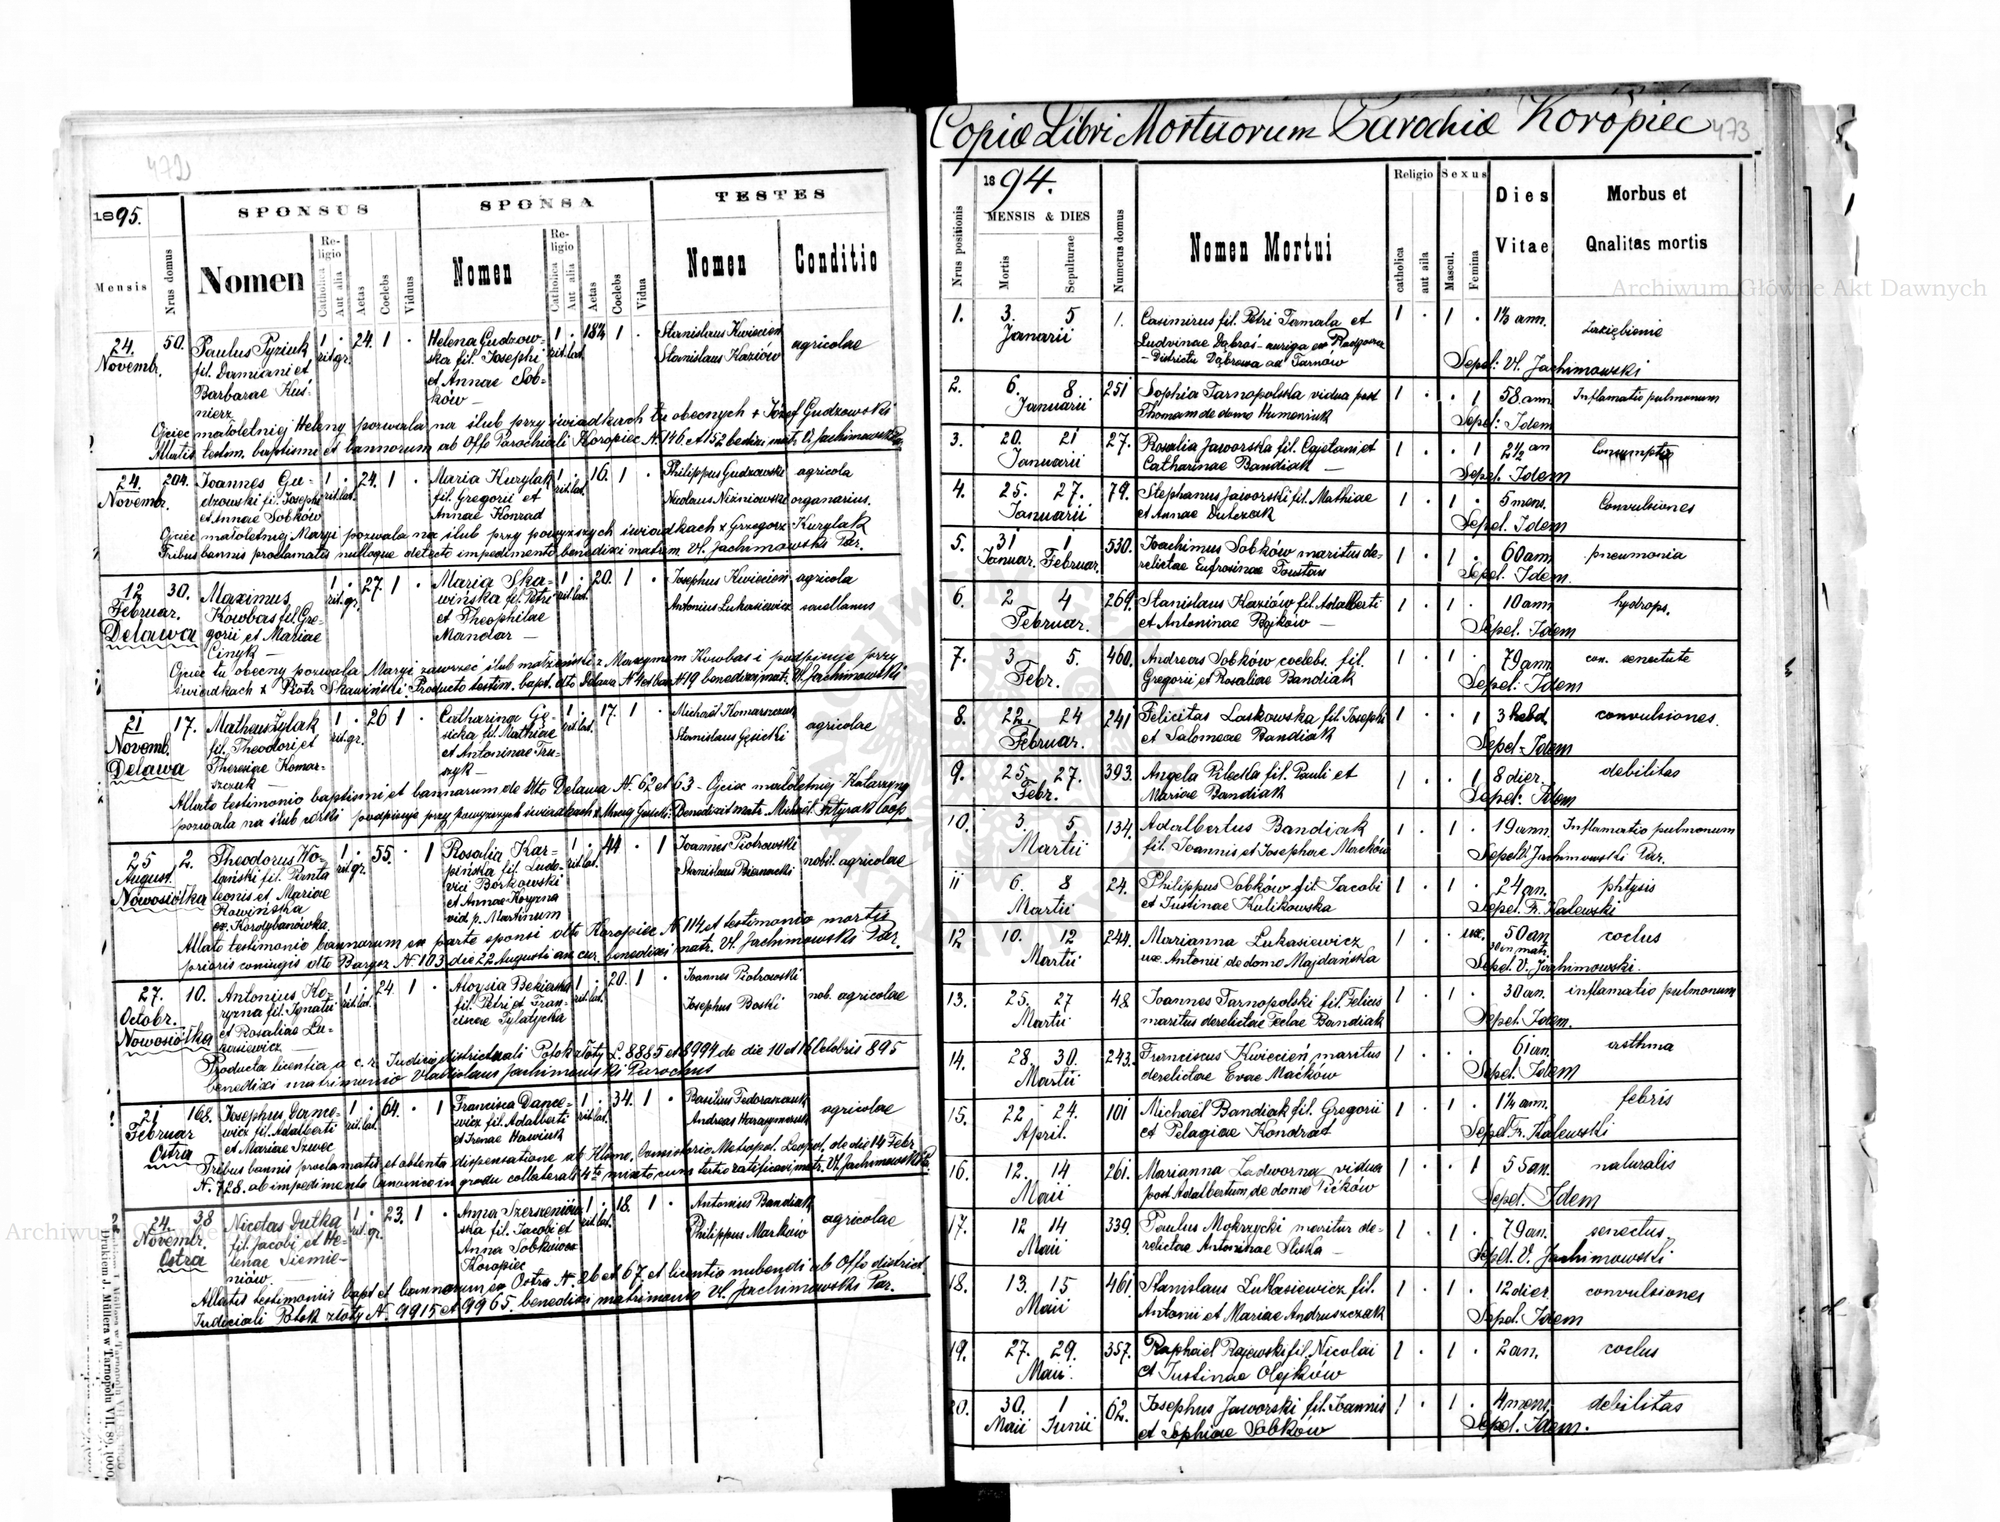 472
1895.
SPONSUS
SPONSA
TESTES
Mensis
Nrus domus
Nomen
Religio
Catholica
Aut alia
Aetas
Coelebs
Viduus
Nomen
Religio
Catholica
Aut alia
Aetas
Coelebs
Vidua
Nomen
Conditio
24. 50. Paulus Pyziuk 1 . 24. 1 . Helena Gudzow- 1 . 18¾ 1 . Stanislaus Kwiecień
Novembr. fil. Damiani et rit.gr. ska fil. Josephi rit.lat. Stanislaus Kaziów agricolae
Barbarae Kuś- et Annae Sob-
nierz ków —
Ojciec małoletniej Heleny pozwala na ślub przy świadkach tu obecnych + Józef Gudzowski
Allatis testim. baptismi et bannorum ab Offo Parochiali Koropiec N. 146 et 152 bedixi matr. V. Jachimowski Par.
24. 204. Joannes Gu- 1 . 24. 1 . Maria Kurylak 1 . 16. 1 . Philippus Gudzowski agricola
Novembr. dzowski fil. Josephi rit.lat. fil. Gregorii et rit.lat. Nicolaus Niźniowski organarius.
et Annae Sobków Annae Konrad
Ojciec małoletniej Maryi pozwala na ślub przy powyższych świadkach + Grzegorz Kurylak
Tribus bannis proclamatis nulloque detecto impedimento benedixi matrim. Vl. Jachimowski Par.
12 30. Maximus 1 . 27. 1 . Maria Ska- 1 . 20. 1 . Josephus Kwiecień agricola
Februar. Kowbas fil. Gre- rit.gr. wińska fil. Petri rit.lat. Antonius Lukasiewicz
Delawa gorii et Mariae et Theophilae
Cinyk — Mandar —
Ojciec tu obecny pozwala Maryi zawrzeć ślub małżeński z Maxymem Kowbas i podpisuje przy
świadkach + Piotr Skawiński Producto testim. bapt. dto Delawa N. 4 et ban. N 19 benedixi matr. Vl. Jachimowski
21 17. Matheus Żylak 1 . 26 1 . Catharina Gę- 1 . 17. 1 . Michaël Komarszczuk
Novemb. fil. Theodori et rit.gr. sicka fil. Mathiae rit.lat. Stanislaus Gęsicki agricolae
Delawa Theresiae Komar- et Antoninae Tru-
szczuk — szyk —
Allato testimonio baptismi et bannorum de dto Delawa N. 62 et 63 — Ojciec małoletniej Katarzyny
pozwala na ślub córki podpisuje przy powyższych świadkach + Maciej Gęsicki. Benedixit matr. Michaël Sztyrak Coop
25 2. Theodorus Wo- 1 . 55. . 1 Rosalia Kar- 1 . 44 . 1 Joannes Piotrowski
August. lański fil. Panta rit.gr. pińska fil. Ludo- rit.lat. nobil. agricolae
Nowosiółka leonis et Mariae vici Borkowski
Rowińska et Annae Koryzna
Korolybanówka vid p. Martinum
Allato testimonio bannorum ex parte sponsi dto Koropiec N 114 et testimonio mortis
prioris coniugis dto Barysz N. 103 die 22 Augusti an cur. benedixi matr. Vl. Jachimowski Par.
27. 10. Antonius Ko- 1 . 24. 1 . Aloysia Bekierska 1 . 20. 1 . Joannes Piotrowski
Octobr. ryzna fil. Ignatii rit.lat. fil. Petri et Fran- rit.lat. Josephus Boski nob. agricolae
Nowosiółka et Rosaliae Lu- ciscae Tylatycka
kasiewicz —
Producta licentia a c. r. Judicio districtuali Potok złoty L. 8885 et 8994 de die 10 et 16 Octobris 895
benedixi matrimonio Vladislaus Jachimowski Parochus
21 168. Josephus Dance- 1 . 64. . 1 Francisca Dance- 1 . 34. 1 . Basilius Fedoraszczuk
Februar wicz fil. Adalberti rit.lat. wicz fil. Adalberti rit.lat. Andreas Harasymczuk agricolae
Ostra et Mariae Szwec et Irenae Hawiuk
Tribus bannis proclamatis et obtenta dispensatione ab Illmo. Consistorio Metropol. Leopol. de die 14 Febr
N. 728. ab impedimento canonico in gradu collaterali 4to mixto cum tertio ratificavi matr. Vl. Jachimowski Par
24. 38 Nicolas Dutka 1 . 23. 1 . Anna Szerszeniow 1 . 18. 1 . Antonius Bandiak
Novembr. fil. Jacobi et He- rit.gr. ska fil. Jacobi et rit.lat. Philippus Marków agricolae
Ostra lenae Siemie- Anna Sobkowicz
niów Koropiec
Allatis testimoniis bapt et bannorum ex Ostra N. 26 et 67 et licentia nubendi ab Offo district.
Judiciali Potok złoty N. 9915 et 9965. benedixi matrimonio Vl. Jachimowski Par.
Drukiem J. Müllera w Tarnopolu VII. 89. 1000.
Copia Libri Mortuorum Parochiæ Koropiec
473
1894.
Nrus positionis
MENSIS & DIES
Mortis
Sepulturae
Numerus domus
Nomen Mortui
Religio
catholica
aut alia
Sexus
Mascul.
Femina
Dies Vitae
Morbus et
Qualitas mortis
1. 3. 5 1. Casimirus fil. Petri Tamala et 1 . 1 . 1⅓ ann. zaziębienie
Januarii Ludvinae Dąbroś — auriga ex Radgoszcz
— Districtu Dąbrowa ad Tarnów Sepel: Vl. Jachimowski
2. 6. 8 251 Sophia Tarnopolska vidua post 1 . . 1 58. ann Inflamatio pulmonum
Januarii Thomam de domo Humeniuk Sepel: Idem
3. 20. 21 27. Rosalia Jaworska fil. Cajetani et 1 . . 1 2½ an Consumptio
Januarii Catharinae Bandiak — Sepel. Idem
4. 25. 27. 79. Stephanus Jaworski fil. Mathiae 1 . 1 . 5 mens. Convulsiones
Januarii et Annae Dutczak Sepel. Idem
5. 31 1 530. Joachimus Sobków maritus de- 1 . 1 . 60 ann. pneumonia
Januar. Februar. relictae Eufrosinae Faustau Sepel. Idem.
6. 2 4 269. Stanislaus Kaziów fil. Adalberti 1 . 1 . 10 ann hydrops.
Februar. et Antoninae Bojków — Sepel. Idem
7. 3 5. 460. Andreas Sobków coelebs. fil. 1 . 1 . 79 ann. con. senectute
Febr. Gregorii et Rosaliae Bandiak Sepel. Idem
8. 22. 24 241 Felicitas Laskowska fil. Josephi 1 . . 1 3 hebd. convulsiones.
Februar. et Salomeae Bandiak Sepel. Idem
9. 25. 27. 393. Angela Pilecka fil. Pauli et 1 . . 1 8 dier. debilitas
Febr. Mariae Bandiak Sepel: Idem
10. 3. 5 134. Adalbertus Bandiak 1 . 1 . 19 ann. Inflamatio pulmonum
Martii fil. Joannis et Josephae Marcków Sepel. Vl Jachimowski Par.
11 6. 8 24. Philippus Sobków fil Jacobi 1 . 1 . 24 an. phtysis
Martii et Justinae Kulikowska Sepel. Fr. Kalewski
12 10. 12 244. Marianna Lukasiewicz 1 . . ux. 50 an coclus
Martii ux. Antonii de domo Majdańska 30 in matr. Sepel. V. Jachimowski.
13. 25. 27 48 Joannes Tarnopolski fil. Felicis 1 . 1 . 30 an. inflamatio pulmonum
Martii maritus derelictae Teclae Bandiak Sepel. Idem.
14. 28. 30. 243. Franciscus Kwiecień maritus 1 . . . 61 an. asthma
Martii derelictae Evae Maćków Sepel. Idem
15. 22 24. 101 Michaël Bandiak fil. Gregorii 1 . 1 . 1¼ ann. febris
April. et Pelagiae Kondrat Sepel Fr. Kalewski
16. 12. 14 261. Marianna Zadworna vidua 1 . . 1 55 an. naturalis
Maii post Adalbertum de domo Pićków Sepel. Idem
17. 12 14 339. Paulus Mokrzycki maritus de- 1 . 1 . 79 an. senectus
Maii relictae Antoninae Sliska — Sepel V. Jachimowski
18. 13. 15 461. Stanislaus Lukasiewicz fil. 1 . 1 . 12 dier. convulsiones
Maii Antonii et Mariae Andruszczak Sepel. Idem
19. 27. 29. 357. Raphael Rajewski fil. Nicolai 1 . 1 . 2 an. coclus
Maii et Justinae Olejków
20. 30. 1 62. Josephus Jaworski fil. Joannis 1 . 1 . 4 mens. debilitas
Maii Junii et Sophiae Sobków Sepel. Idem.
Archiwum Główne Akt Dawnych